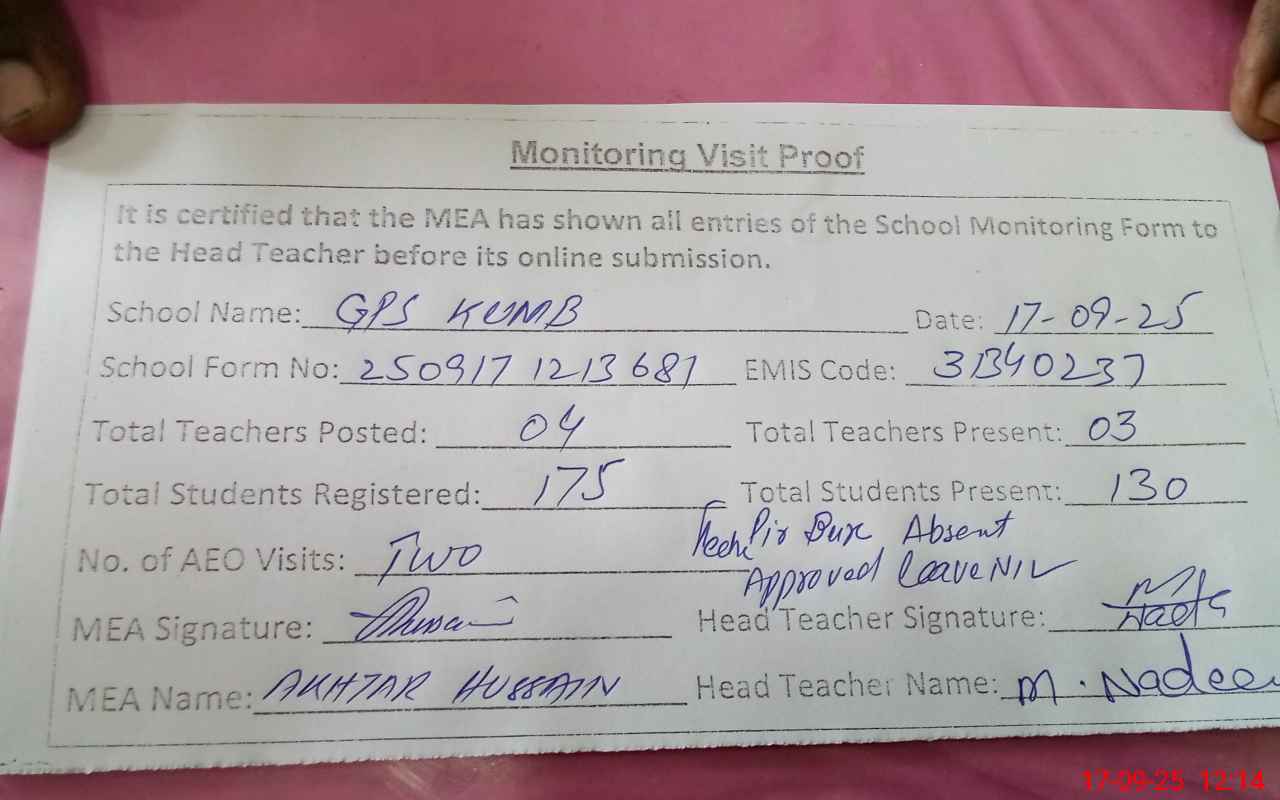 Monitoring Visit Proof
It is certified that the MEA has shown all entries of the School Monitoring Form to
the Head Teacher before its online submission.
School Name: GPS KUMB Date: 17-09-25
School Form No: 250917 1213681 EMIS Code: 31340237
Total Teachers Posted: 04 Total Teachers Present: 03
Total Students Registered: 175 Total Students Present: 130
Pir Bux Absent
No. of AEO Visits: Two
Approved leave NIL
MEA Signature: Head Teacher Signature:
MEA Name: AKHTAR HUSSAIN Head Teacher Name: M. Nadee
17-09-25 12:14